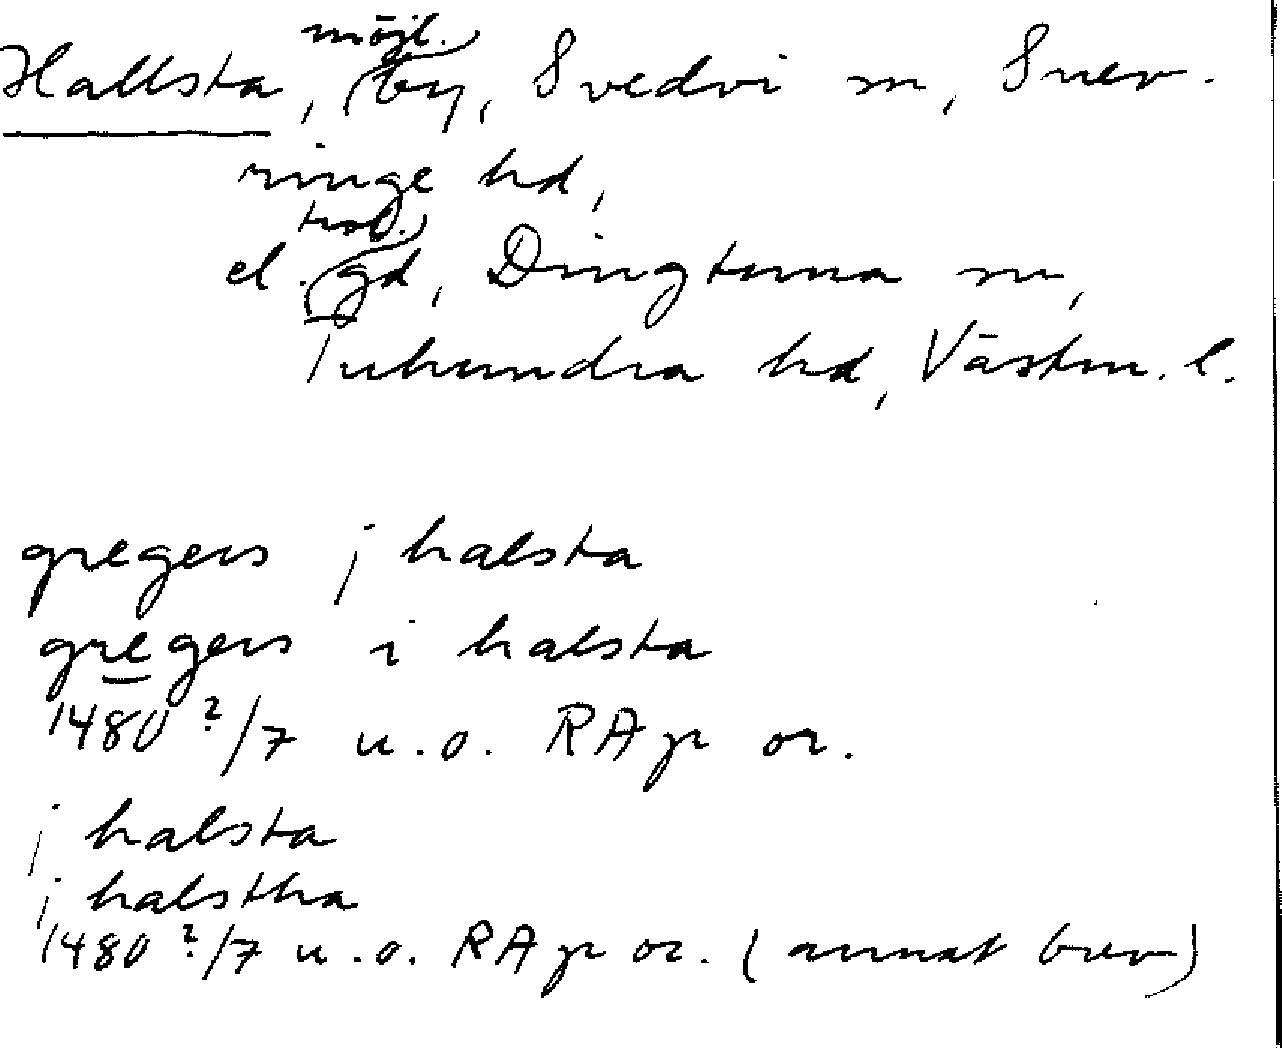 möjl.
Hallsta, (by, Svedvi sn, Snev-
ringe hd,
trol.
el. (gd, Dingtuna sn,
Tuhundra hd, Västm. l.
gregers j halsta
gregers i halsta
1480 ?/7 u.o. RAp or.
j halsta
j halstha
1480 ?/7 u.o. RAp or. (annat brev)